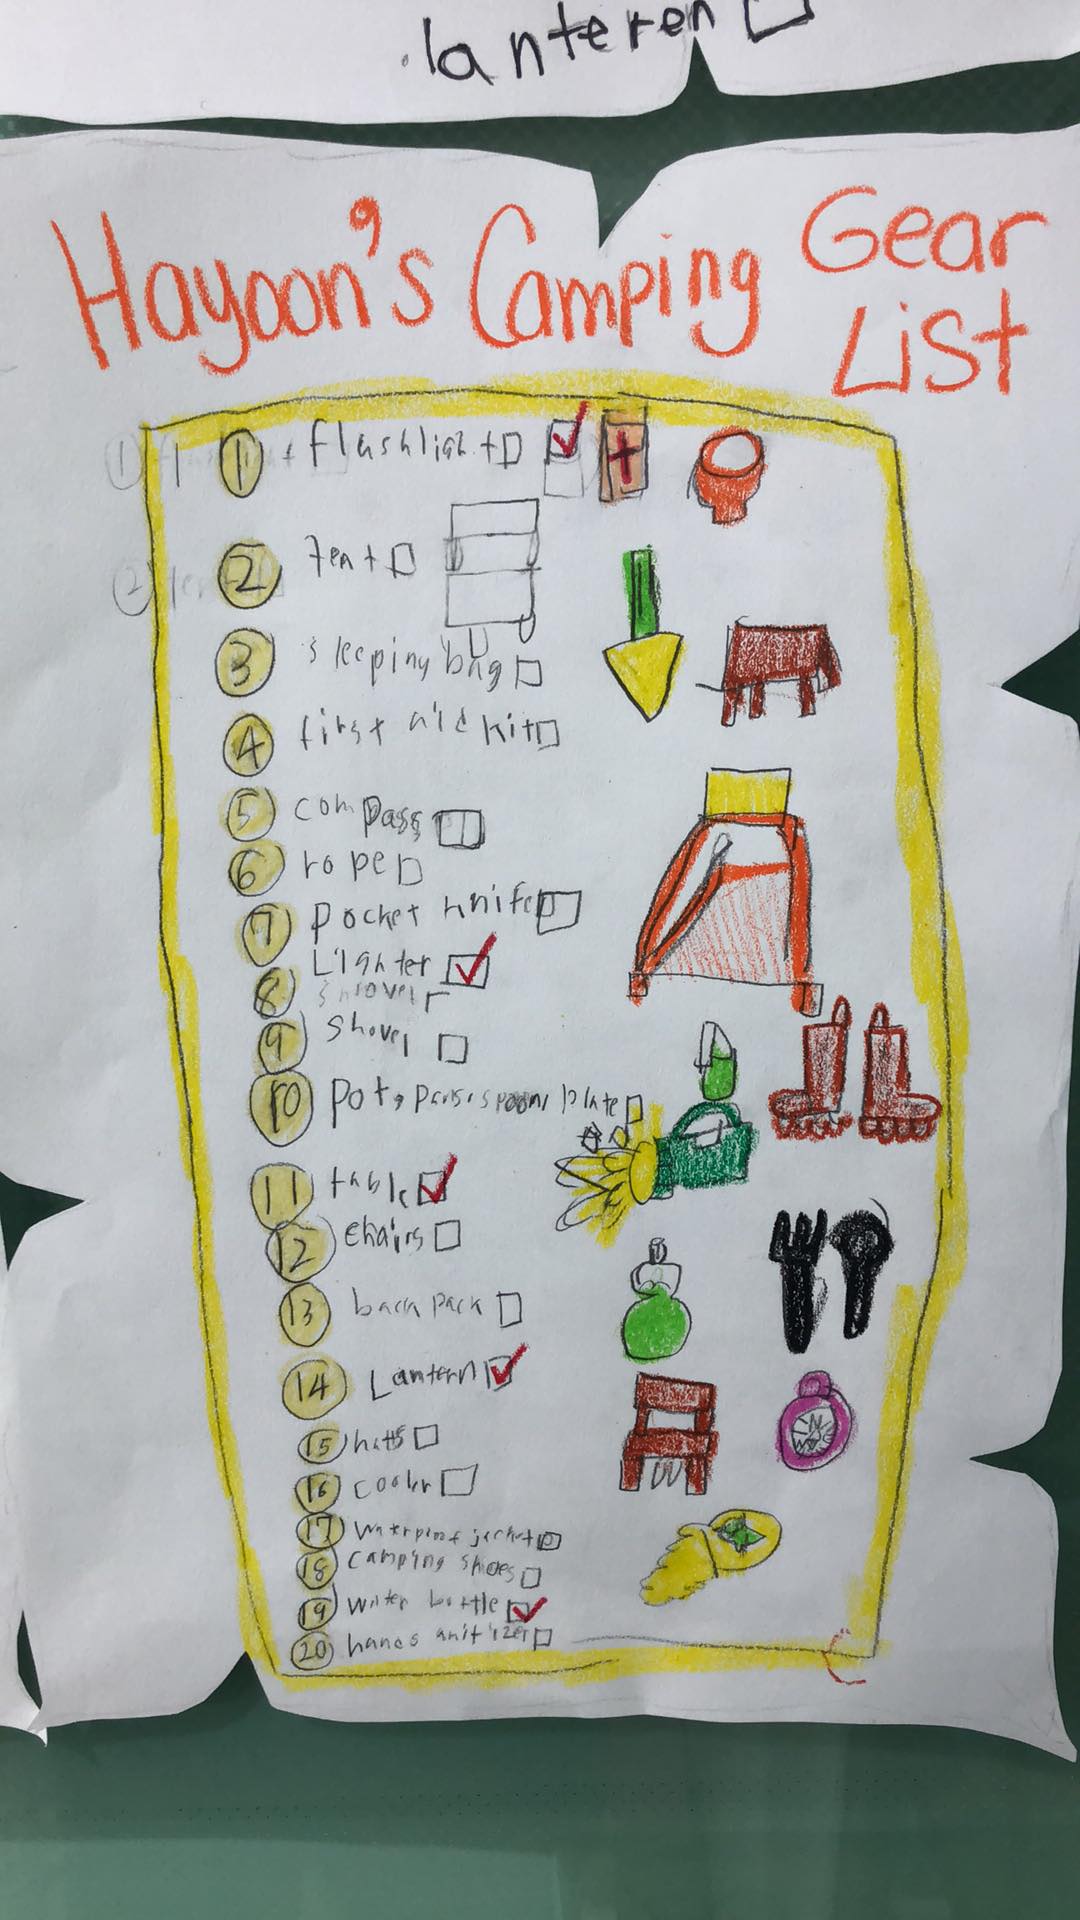 lanteren
Hayoon's Camping Gear List
1 flashlight
2 tent
3 sleeping bag
4 first aid kit
5 compass
6 rope
7 pocket knife
Lighter
8 shrovel
9 shovel
10 pot, pans, spoon, plate
11 table
12 chairs
13 back pack
14 Lantern
15 hats
16 cooler
17 waterproof jacket
18 camping shoes
19 water bottle
20 hand sanitizer